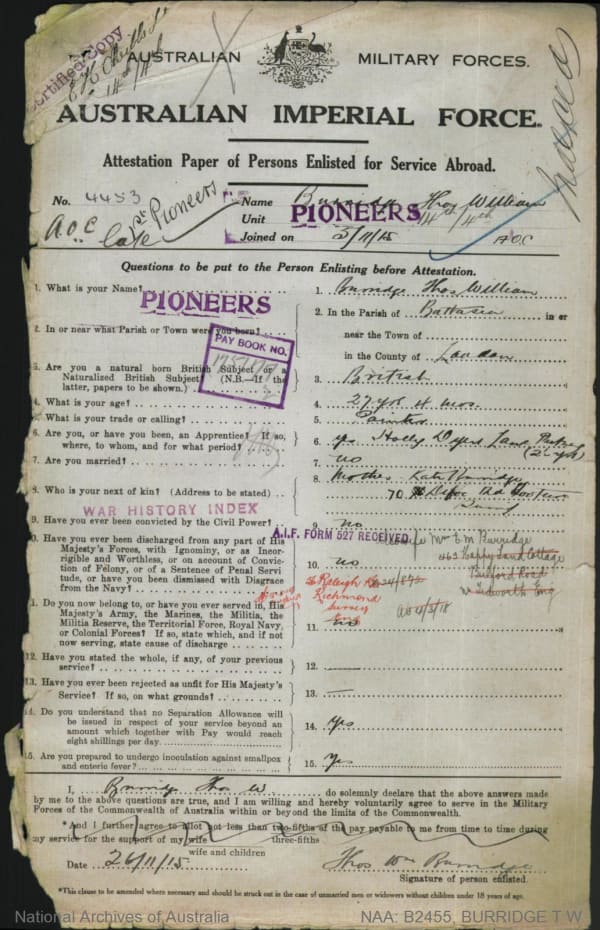 Certified Copy
14th/4th
AUSTRALIAN MILITARY FORCES.
AUSTRALIAN IMPERIAL FORCE.
Attestation Paper of Persons Enlisted for Service Abroad.
No. 4453
A.O.C
late 1st Pioneers
Name Burridge Thos William
Unit PIONEERS 14th/4th
Joined on 3/11/15 A.O.C
Questions to be put to the Person Enlisting before Attestation.
1. What is your Name?
1. Burridge Thos William
PIONEERS
2. In or near what Parish or Town were you born?
2. In the Parish of Battasea in or
near the Town of
in the County of London
PAY BOOK NO.
3. Are you a natural born British Subject or a
Naturalized British Subject? (N.B.—If the
latter, papers to be shown.)
3. British
4. What is your age?
4. 27 yrs 4 mos.
5. What is your trade or calling?
5. Painter
6. Are you, or have you been, an Apprentice? If so,
where, to whom, and for what period?
6. yes Holly Lane
7. Are you married?
7. no
8. Who is your next of kin? (Address to be stated)
8. Mother Kate Burridge
70
WAR HISTORY INDEX
9. Have you ever been convicted by the Civil Power?
9. No
A.I.F. FORM 527 RECEIVED
Wife Mrs E M Burridge
463 Happy Land Cottage
Bulford Road
Tidworth Eng
10. Have you ever been discharged from any part of His
Majesty's Forces, with Ignominy, or as Incor-
rigible and Worthless, or on account of Convic-
tion of Felony, or of a Sentence of Penal Servi-
tude, or have you been dismissed with Disgrace
from the Navy?
10. no
Raleigh Rd
Richmond
Surrey
Eng
11. Do you now belong to, or have you ever served in, His
Majesty's Army, the Marines, the Militia, the
Militia Reserve, the Territorial Force, Royal Navy,
or Colonial Forces? If so, state which, and if not
now serving, state cause of discharge
11. no
12. Have you stated the whole, if any, of your previous
service?
12. —
13. Have you ever been rejected as unfit for His Majesty's
Service? If so, on what grounds?
13. —
14. Do you understand that no Separation Allowance will
be issued in respect of your service beyond an
amount which together with Pay would reach
eight shillings per day.
14. Yes
15. Are you prepared to undergo inoculation against smallpox
and enteric fever?
15. Yes
I, Burridge Thos W. do solemnly declare that the above answers made
by me to the above questions are true, and I am willing and hereby voluntarily agree to serve in the Military
Forces of the Commonwealth of Australia within or beyond the limits of the Commonwealth.
*And I further agree to allot not less than two-fifths of the pay payable to me from time to time during
three-fifths
my service for the support of my wife
wife and children
Date 26/11/15
Thos Wm Burridge
Signature of person enlisted.
*This clause to be amended where necessary and should be struck out in the case of unmarried men or widowers without children under 18 years of age.
National Archives of Australia
NAA: B2455, BURRIDGE T W